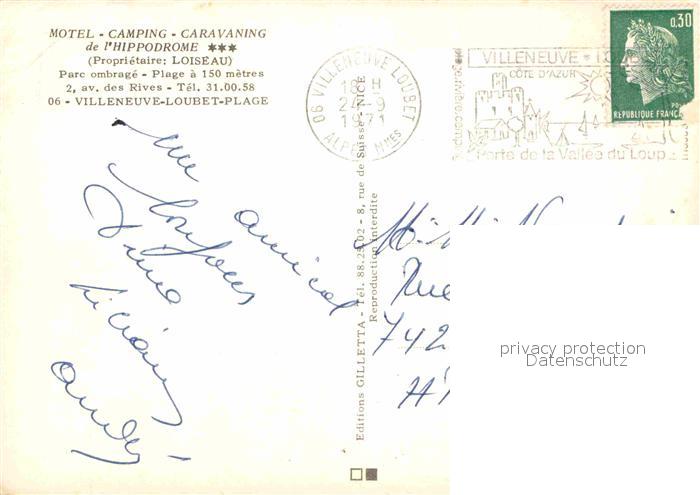 MOTEL - CAMPING - CARAVANING
de l'HIPPODROME ★★★
(Propriétaire: LOISEAU)
Parc ombragé - Plage à 150 mètres
2, av. des Rives - Tél. 31.00.58
06 - VILLENEUVE-LOUBET-PLAGE
06 VILLENEUVE LOUBET
18 H
24-9
1971
ALPES MMES
VILLENEUVE
CÔTE D'AZUR
Porte de la Vallée du Loup
0,30
REPUBLIQUE FRANÇA
un amical
bonjour
andré
Rue
742
Editions GILLETTA - Tél. 88.25.02 - 8, rue de Suisse - NICE
Reproduction interdite
privacy protection
Datenschutz